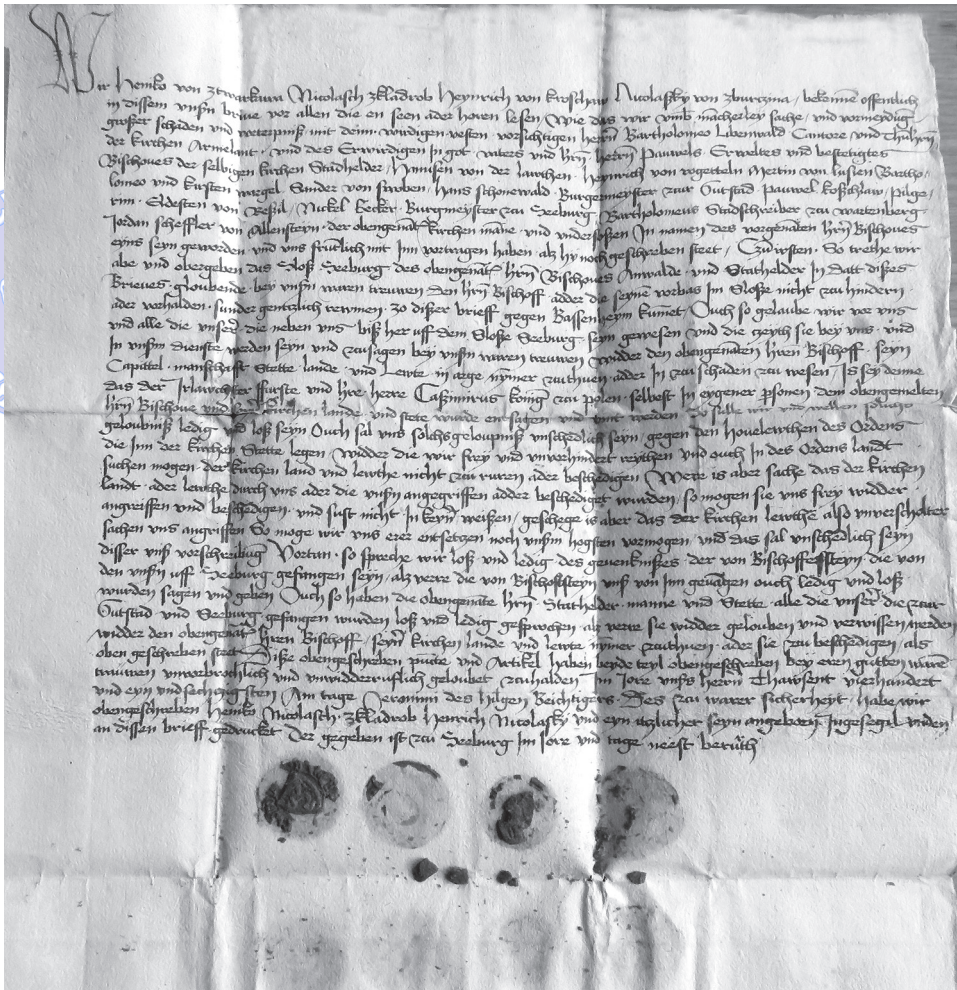 Wir Heniko von Nicolasch zkladrob Heynrich von Kroschaw Nicolasky von bekenne offentlich
in dissem unsirn brive vor allen die en seen ader horen lesen / Wie das wir umb macherley sache / und vormeydung
großer schaden und mit deme wirdigen vesten vorsichtigen herrn Bartholomeo Libenwald Cantore und Thumhrn
der kirchen Armelant · und des Erwirdigen In got vaters und hrn herrn Pauwels Erweltes und bestetigtes
Bischoves der selbigen kirchen Stadhelder / Hannsen von der Heynrich von Mertin von Lusien Bartho-
lomeo und Kirsten wargel Sander von Hans schonewald Burgermeyster zcur Gutstad Pauwel Pilge-
rim Eldesten von Resil / Nickel Becker Burgmeyster zcu Seeburg Bartholomeus Stadschreiber zcu wartenberg
Jordan scheffler von Allensteyn der obengenate kirchen mane und undersosen In namen des vorgenaten hrn Bischoves
eyns seyn geworden und uns fruntlich mit Inn vortragen haben als hy noch geschreben steet / Zcu irsten So trethe wir
abe und obergeben das Sloß Seeburg des obengenate hrn Bischoves Anwalde und Stathelder In datt dißes
Brieves gloubende bey unsirn waren treuwen den hrn Bischoff adder die seynen vorbas im Sloße nicht zcu hindern
ader vorhalden sunder gentzlich rewmen zo dißer brieff gegen kumet Ouch so gelaube wir vor uns
und alle die unsere die neben uns biß her uff dem Sloße Seeburg seyn gewesen und die czeyth sie bey uns und
In unsirm dienste werden seyn und zcusagen bey unsirn waren treuwen widder den obengenaten hrren Bischoff seyn
Capittel manschafft Stette lande und Lewte in arge nymer zcuthuen adder In zcu schaden zcu wesen Is sey denne
das der Irlawchster furste und hre herre Casimirus konig zcu polen selbest In eygener psonen dem obengemelten
hrn Bischove und der kirchen lande und stete wurde entsagen und werden So sulle wir und wellen sollichs
geloubniß ledig und loß seyn Ouch sal uns solchs geloupniß unschedlich seyn gegen den hovelewthen des Ordens
die Inn der kirchen Stette legen widder die wir frey und unvorhindert reythen und ouch In des Ordens landt
suchen mogen der kirchen land und lewthe nicht zcu ruren ader beschedigen Were is aber sache das der kirchen
landt ader lewthe durch uns ader die unsirn angegriffen adder beschediget wurden so mogen sie uns frey widder
angreiffen und beschedigen und sust nicht In keyne weißen / geschege is aber das der kirchen lewthe also unverscholter
sachen uns angriffen So moge wir uns erer entsetzen noch unsirm hogsten vormogen und das sal unschedlich seyn
disser unß vorschreibung Vortan so spreche wir loß und ledig des gevenknißes der von Bischoffessteyn die von
den unsirn uff Seeburg gefangen seyn als verre die von Bischoffsteyn unß von Inn gevangen ouch ledig und loß
wurden sagen und geben Ouch so haben die obengenate hrn Stathelder manne und Stette alle die unsere die zcur
Gutstad und Seeburg gefangen wurden loß und ledig gesprochen als verre sie widder gelouben und verwissen werden
widder den obengenate hrren Bischoff seyne kirchen lande und lewte nymer zcuthuen ader sie zcu beschedigen als
oben geschreben steet Diße obengeschreben pucte und Artikel haben beyde teyl obengeschreben bey eren gutten waren
trauwen unvorbrochlich und unwidderrufflich geloubet zcuhalden Im Jore unsers herrn Thawsent vierhundert
und eyn und sechczigsten Am tage Jeronimi des hilgen Beichtigers Des zcu warer sicherheyt habe wir
obengeschreben Heniko Nicolasch zkladrob Henrich Nicolasky und eyn itzlicher seyn angeborn Ingesegil unden
an dissen brieff gedrucket Der gegeben ist zcu Seeburg Im Jore und tage neest beruth